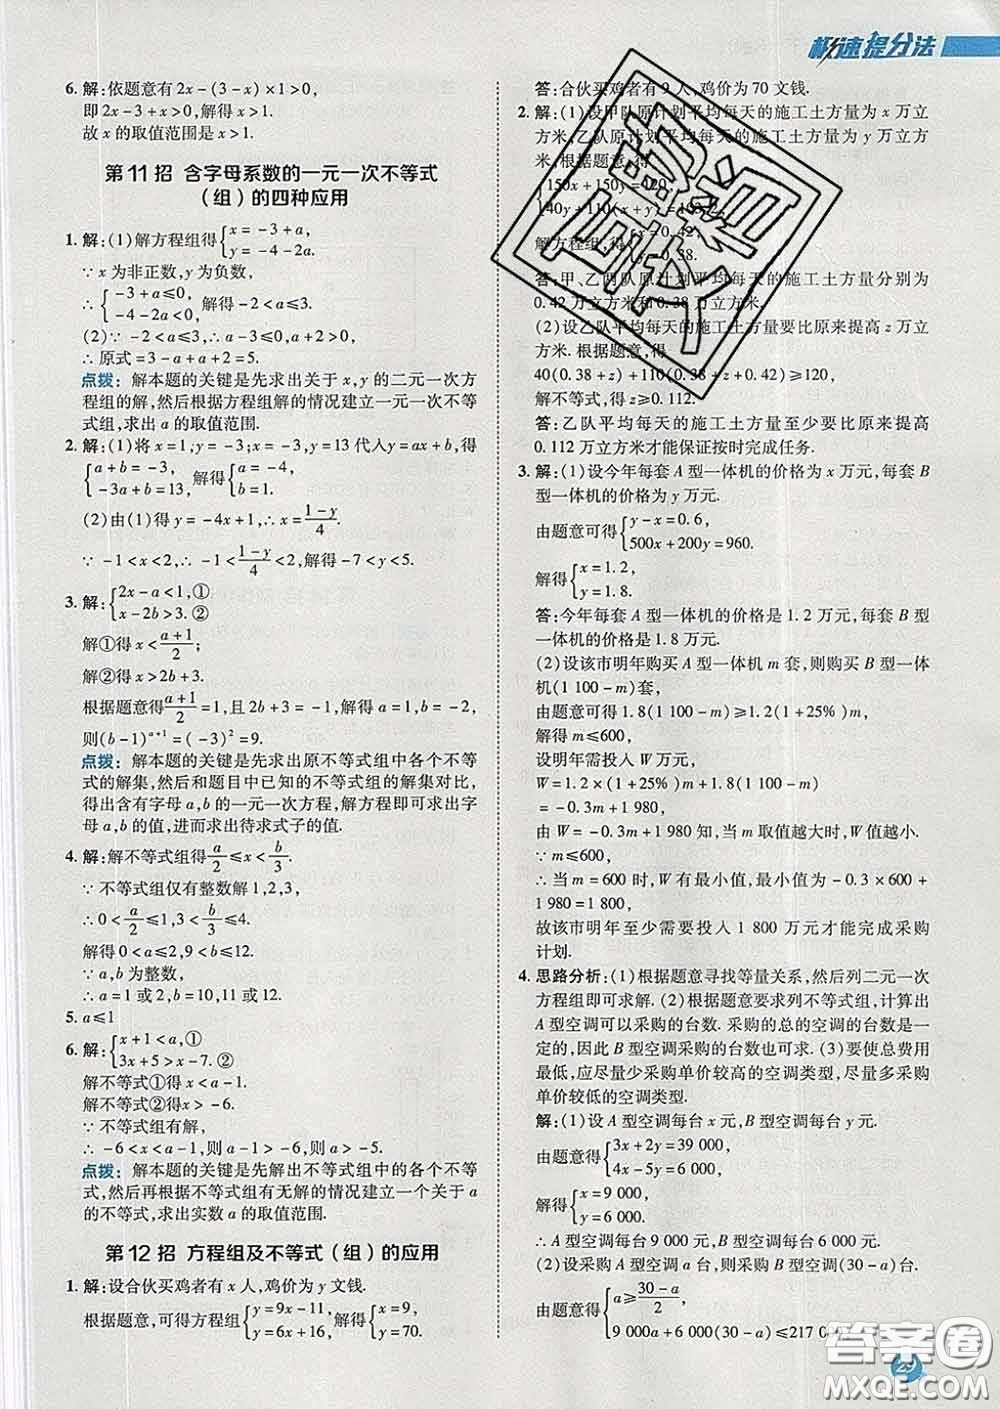 极速提分法
6. 解:依题意有 2x-(3-x)×1>0,
即 2x-3+x>0,解得 x>1.
故 x 的取值范围是 x>1.
第 11 招 含字母系数的一元一次不等式
(组)的四种应用
1. 解:(1)解方程组得{x=-3+a,
y=-4-2a.
∵ x 为非正数,y 为负数,
∴ {-3+a≤0,
-4-2a<0, 解得-2<a≤3.
(2)∵ -2<a≤3,∴ a-3≤0,a+2>0,
∴ 原式=3-a+a+2=5.
点拨: 解本题的关键是先求出关于 x,y 的二元一次方
程组的解,然后根据方程组解的情况建立一元一次不等
式组,求出 a 的取值范围.
2. 解:(1)将 x=1,y=-3;x=-3,y=13 代入 y=ax+b,得
{a+b=-3,
-3a+b=13, 解得{a=-4,
b=1.
(2)由(1)得 y=-4x+1,∴ x=(1-y)/4.
∵ -1<x<2,∴ -1<(1-y)/4<2,解得-7<y<5.
3. 解:{2x-a<1,①
x-2b>3. ②
解①得 x<(a+1)/2;
解②得 x>2b+3.
根据题意得(a+1)/2=1,且 2b+3=-1,解得 a=1,b=-2,
则(b-1)^(a+1)=(-3)^2=9.
点拨: 解本题的关键是先求出原不等式组中各个不等
式的解集,然后和题目中已知的不等式组的解集对比,
得出含有字母 a,b 的一元一次方程,解方程即可求出字
母 a,b 的值,进而求出待求式子的值.
4. 解:解不等式组得 a/2≤x<b/3.
∵ 不等式组仅有整数解 1,2,3,
∴ 0<a/2≤1,3<b/3≤4.
解得 0<a≤2,9<b≤12.
∵ a,b 为整数,
∴ a=1 或 2,b=10,11 或 12.
5. a≤1
6. 解:{x+1<a,①
3x+5>x-7. ②
解不等式①得 x<a-1.
解不等式②得 x>-6.
∵ 不等式组有解,
∴ -6<x<a-1,则 a-1>-6,∴ a>-5.
点拨: 解本题的关键是先解出不等式组中的各个不等
式,然后再根据不等式组有无解的情况建立一个关于 a
的不等式,求出实数 a 的取值范围.
第 12 招 方程组及不等式(组)的应用
1. 解:设合伙买鸡者有 x 人,鸡价为 y 文钱.
根据题意,可得方程组{y=9x-11,
y=6x+16, 解得{x=9,
y=70.
答:合伙买鸡者有 9 人,鸡价为 70 文钱.
2. 解:(1)设甲队原计划平均每天的施工土方量为 x 万立
方米,乙队原计划平均每天的施工土方量为 y 万立方
米.根据题意,得
{150x+150y=120,
40y+110(x+y)=103.2.
解方程组,得{x=0.42,
y=0.38.
答:甲、乙两队原计划平均每天的施工土方量分别为
0.42 万立方米和 0.38 万立方米.
(2)设乙队平均每天的施工土方量要比原来提高 z 万立
方米. 根据题意,得
40(0.38+z)+110(0.38+z+0.42)≥120,
解不等式,得 z≥0.112.
答:乙队平均每天的施工土方量至少要比原来提高
0.112 万立方米才能保证按时完成任务.
3. 解:(1)设今年每套 A 型一体机的价格为 x 万元,每套 B
型一体机的价格为 y 万元.
由题意可得{y-x=0.6,
500x+200y=960.
解得{x=1.2,
y=1.8.
答:今年每套 A 型一体机的价格是 1.2 万元,每套 B 型
一体机的价格是 1.8 万元.
(2)设该市明年购买 A 型一体机 m 套,则购买 B 型一体
机(1 100-m)套,
由题意可得 1.8(1 100-m)≥1.2(1+25%)m,
解得 m≤600,
设明年需投入 W 万元,
W=1.2×(1+25%)m+1.8(1 100-m)
=-0.3m+1 980,
由 W=-0.3m+1 980 知,当 m 取值越大时,W 越小.
∵ m≤600,
∴ 当 m=600 时,W 有最小值,最小值为-0.3×600+
1 980=1 800,
故该市明年至少需要投入 1 800 万元才能完成采购
计划.
4. 思路分析:(1)根据题意寻找等量关系,然后列二元一次
方程组即可求解. (2)根据题意要求列不等式组,计算出
A 型空调可以采购的台数. 采购的总的空调的台数是一
定的,因此 B 型空调采购的台数也可求. (3)要使总费用
最低,应尽量少采购单价较高的空调类型,尽量多采购
单价较低的空调类型.
解:(1)设 A 型空调每台 x 元,B 型空调每台 y 元,
由题意得{3x+2y=39 000,
4x-5y=6 000.
解得{x=9 000,
y=6 000.
∴ A 型空调每台 9 000 元,B 型空调每台 6 000 元.
(2)设采购 A 型空调 a 台,则采购 B 型空调(30-a)台,
由题意得{a≥(30-a)/2,
9 000a+6 000(30-a)≤217 0
答案圈
MXQE.COM
29